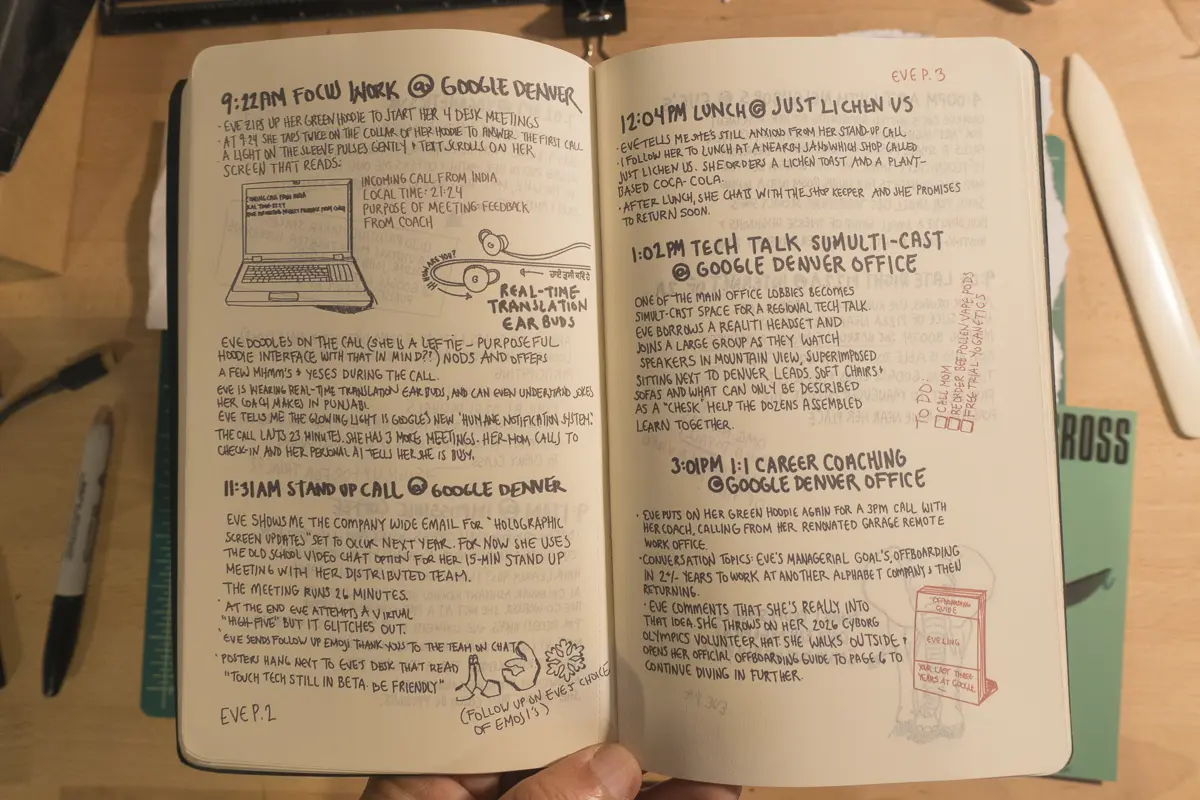 9:22AM FOCUS WORK @ GOOGLE DENVER
· EVE ZIPS UP HER GREEN HOODIE TO START HER 4 DESK MEETINGS
· AT 9:24 SHE TAPS TWICE ON THE COLLAR OF HER HOODIE TO ANSWER THE FIRST CALL
A LIGHT ON THE SLEEVE PULSES GENTLY & TEXT SCROLLS ON HER
SCREEN THAT READS:
INCOMING CALL FROM INDIA
LOCAL TIME: 21:24
PURPOSE OF MEETING: FEEDBACK
FROM COACH
HOW ARE YOU?
REAL-TIME
TRANSLATION
EAR BUDS
EVE DOODLES ON THE CALL (SHE IS A LEFTIE – PURPOSEFUL
HOODIE INTERFACE WITH THAT IN MIND?!) NODS AND OFFERS
A FEW MIHMM'S & YESES DURING THE CALL.
EVE IS WEARING REAL-TIME TRANSLATION EAR BUDS, AND CAN EVEN UNDERSTAND JOKES
HER COACH MAKES IN PUNJABI.
EVE TELLS ME THE GLOWING LIGHT IS GOOGLE'S NEW "HUMANE NOTIFICATION SYSTEM".
THE CALL LASTS 23 MINUTES. SHE HAS 3 MORE MEETINGS. HER MOM CALLS TO
CHECK-IN AND HER PERSONAL AI TELLS HER SHE IS BUSY.
11:31AM STAND UP CALL @ GOOGLE DENVER
EVE SHOWS ME THE COMPANY WIDE EMAIL FOR "HOLOGRAPHIC
SCREEN UPDATES" SET TO OCCUR NEXT YEAR. FOR NOW SHE USES
THE OLD SCHOOL VIDEO CHAT OPTION FOR HER 15-MIN STAND UP
MEETING WITH HER DISTRIBUTED TEAM.
THE MEETING RUNS 26 MINUTES.
· AT THE END EVE ATTEMPTS A VIRTUAL
"HIGH-FIVE" BUT IT GLITCHES OUT.
· EVE SENDS FOLLOW UP EMOJI THANK YOUS TO THE TEAM ON CHAT
· POSTERS HANG NEXT TO EVE'S DESK THAT READ
"TOUCH TECH STILL IN BETA. BE FRIENDLY"
(FOLLOW UP ON EVE'S CHOICE
OF EMOJI'S)
EVE P.2
EVE P. 3
12:04PM LUNCH @ JUST LICHEN US
· EVE TELLS ME SHE'S STILL ANXIOUS FROM HER STAND-UP CALL.
· I FOLLOW HER TO LUNCH AT A NEARBY SANDWICH SHOP CALLED
JUST LICHEN US. SHE ORDERS A LICHEN TOAST AND A PLANT-
BASED COCA-COLA.
· AFTER LUNCH, SHE CHATS WITH THE SHOP KEEPER AND SHE PROMISES
TO RETURN SOON.
1:02PM TECH TALK SUMULTI-CAST
@ GOOGLE DENVER OFFICE
ONE OF THE MAIN OFFICE LOBBIES BECOMES
SIMULT-CAST SPACE FOR A REGIONAL TECH TALK.
EVE BORROWS A REALITI HEADSET AND
JOINS A LARGE GROUP AS THEY WATCH
SPEAKERS IN MOUNTAIN VIEW, SUPERIMPOSED
SITTING NEXT TO DENVER LEADS. SOFT CHAIRS &
SOFAS AND WHAT CAN ONLY BE DESCRIBED
AS A "CHESK" HELP THE DOZENS ASSEMBLED
LEARN TOGETHER.
TO DO:
CALL MOM
REORDER BEE POLLEN VAPE PODS
FREE TRIAL YOGANETICS
3:01PM 1:1 CAREER COACHING
@ GOOGLE DENVER OFFICE
· EVE PUTS ON HER GREEN HOODIE AGAIN FOR A 3PM CALL WITH
HER COACH, CALLING FROM HER RENOVATED GARAGE REMOTE
WORK OFFICE.
· CONVERSATION TOPICS: EVE'S MANAGERIAL GOALS, OFFBOARDING
IN 2+/- YEARS TO WORK AT ANOTHER ALPHABET COMPANY & THEN
RETURNING.
· EVE COMMENTS THAT SHE'S REALLY INTO
THAT IDEA. SHE THROWS ON HER 2026 CYBORG
OLYMPICS VOLUNTEER HAT. SHE WALKS OUTSIDE &
OPENS HER OFFICIAL OFFBOARDING GUIDE TO PAGE 6 TO
CONTINUE DIVING IN FURTHER.
"OFFBOARDING
GUIDE
EVE LING
YOUR LAST THREE
YEARS AT GOOGLE
ROSS